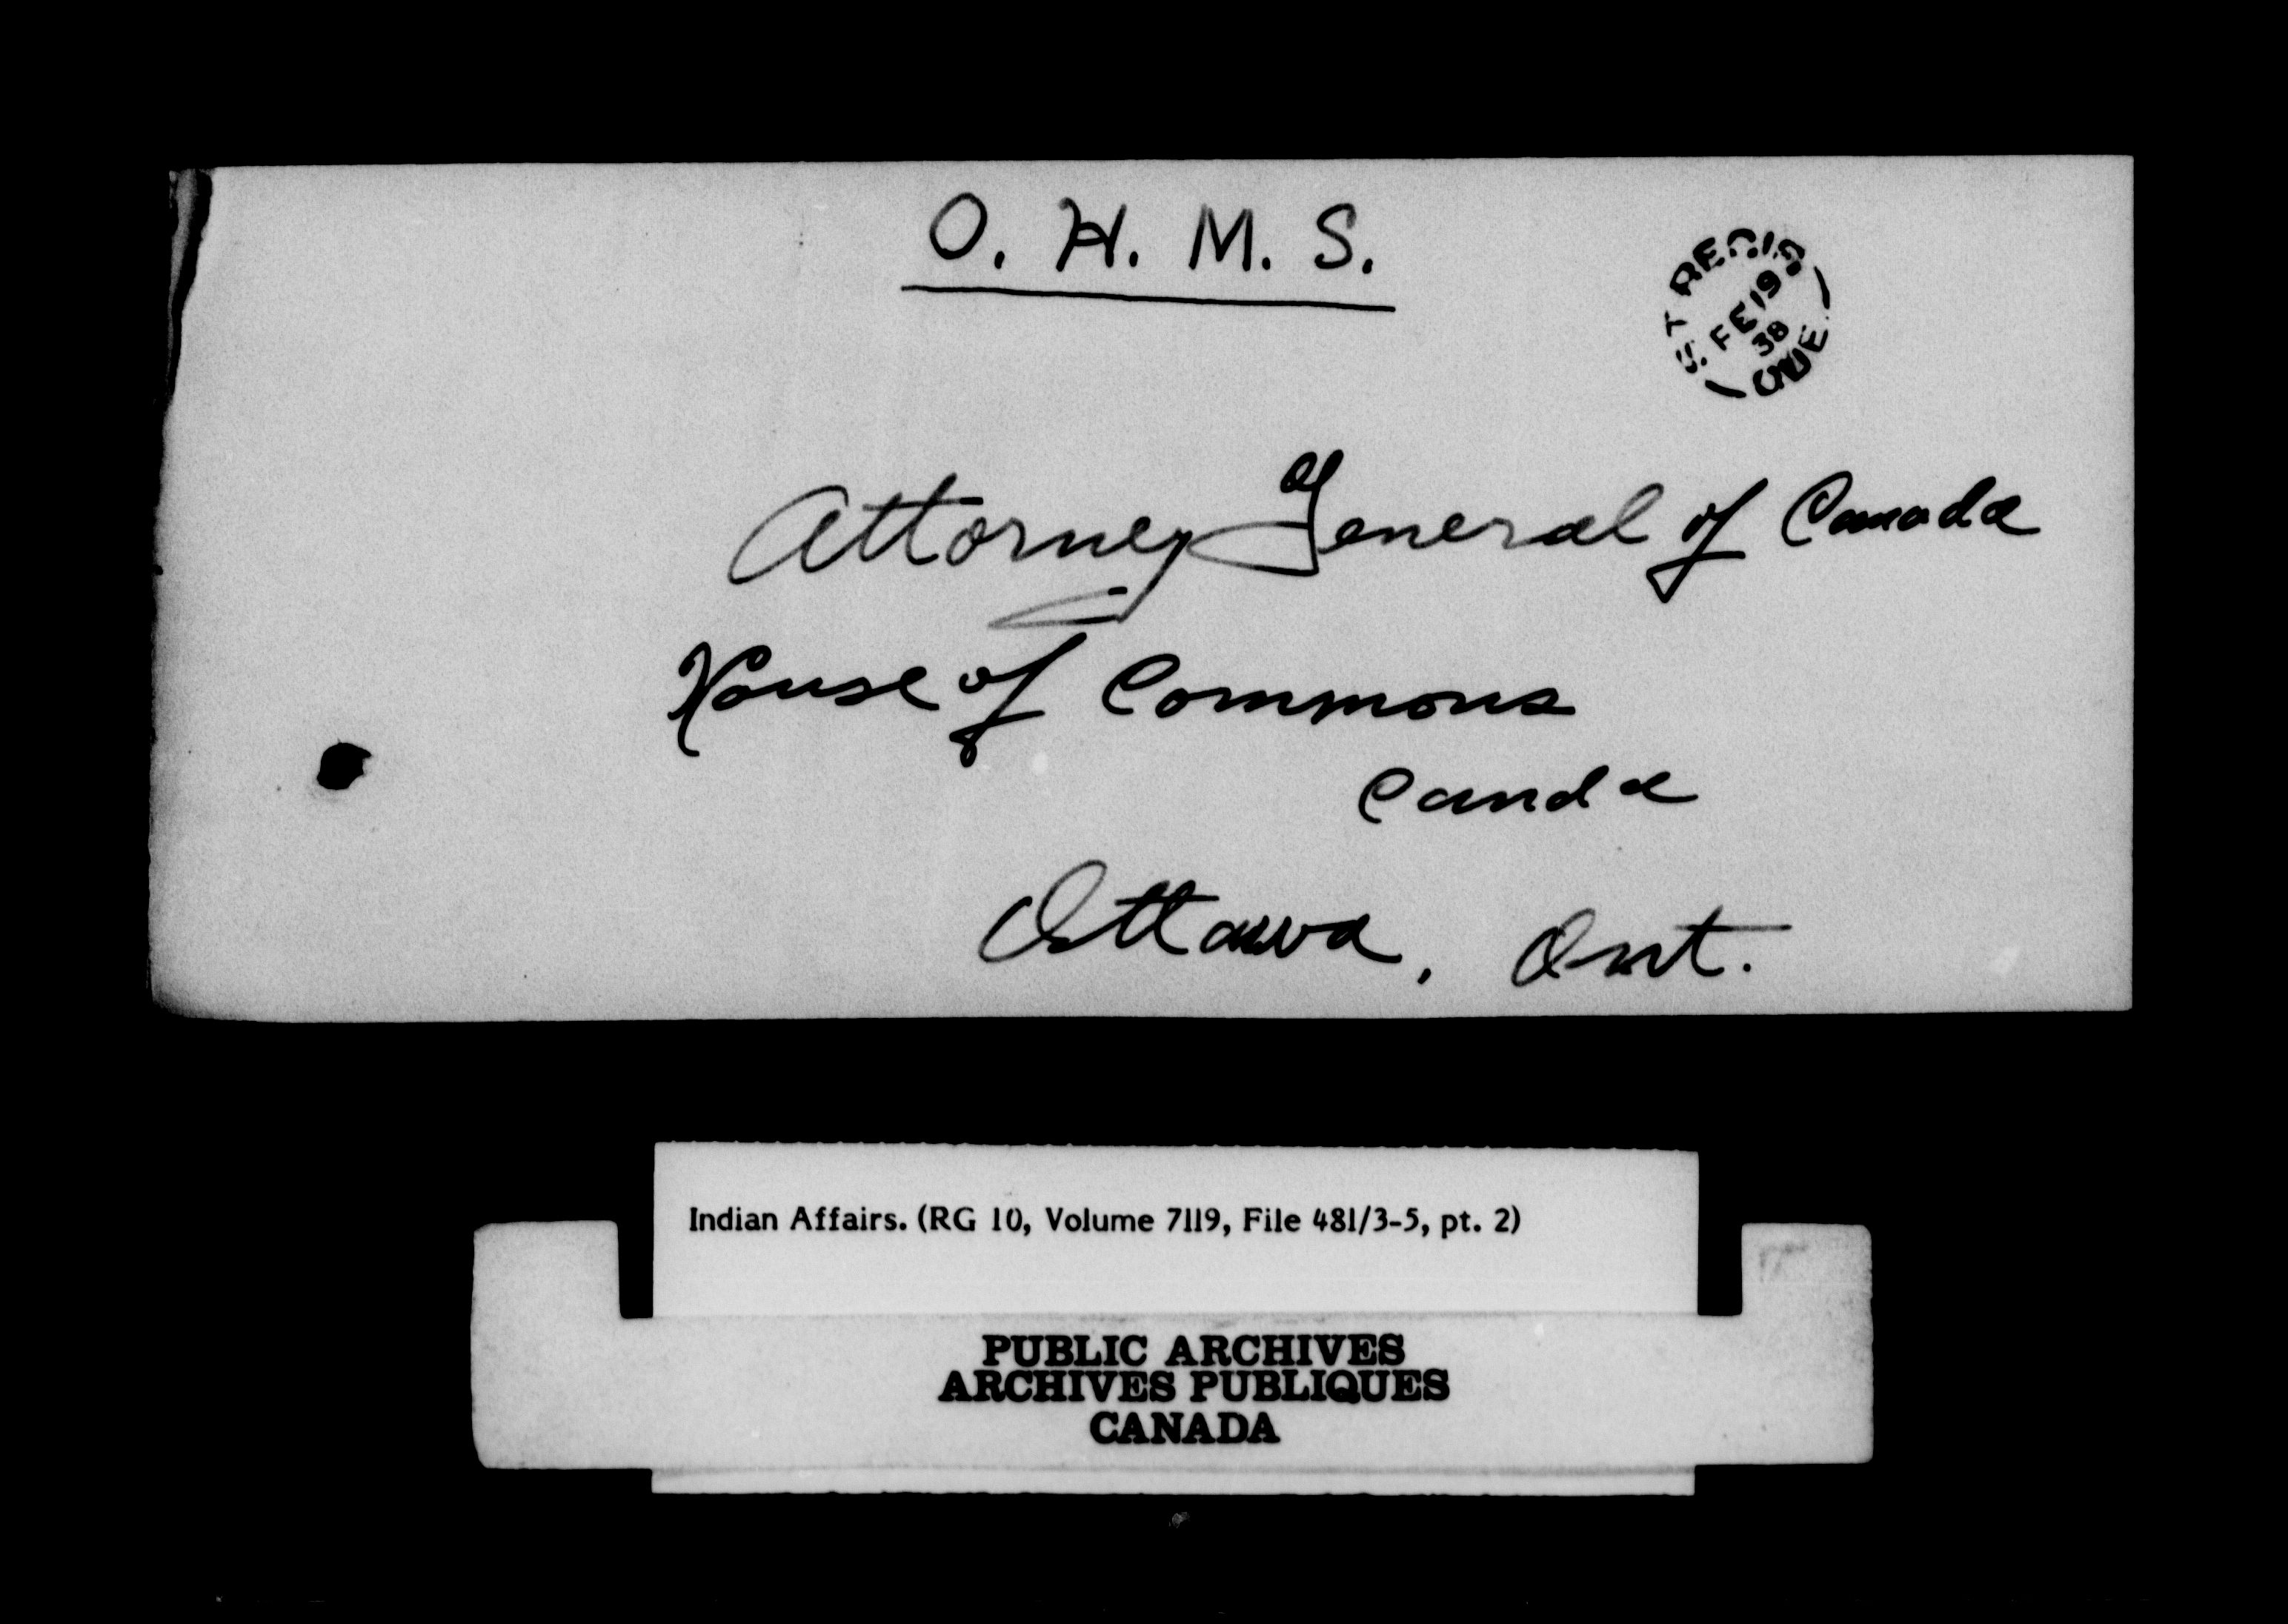 O. H. M. S.
ST REGIS
FE 19
38
QUE
Attorney General of Canada
House of Commons
Canda
Ottawa, Ont.
Indian Affairs. (RG 10, Volume 7119, File 481/3-5, pt. 2)
PUBLIC ARCHIVES
ARCHIVES PUBLIQUES
CANADA